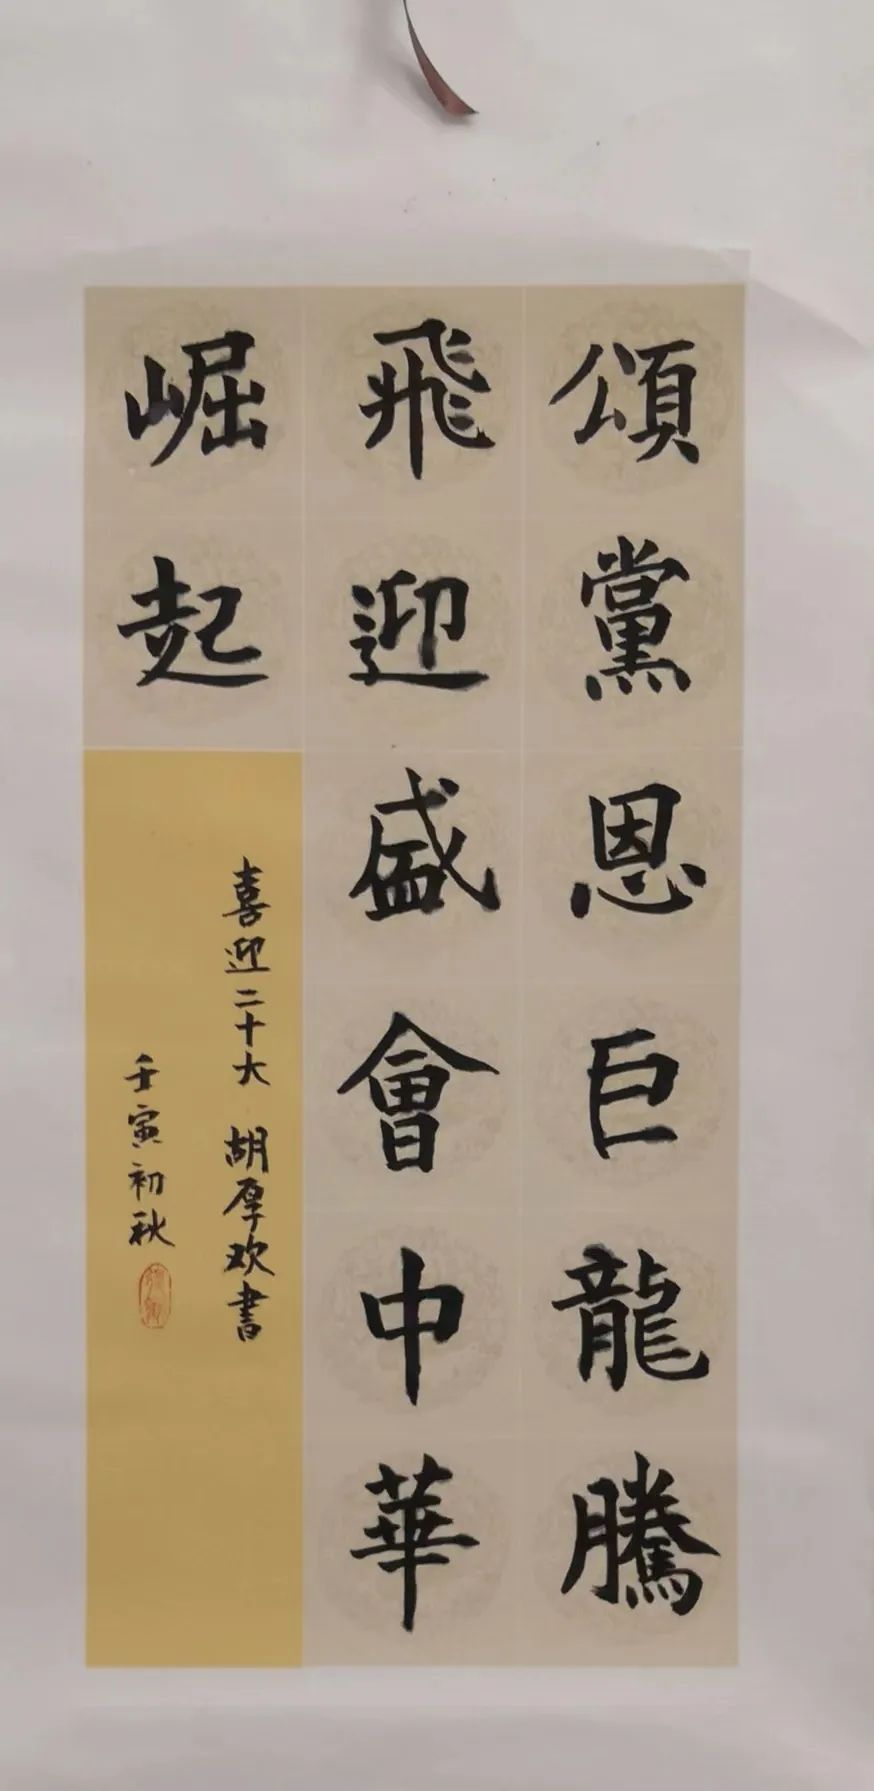 頌黨恩巨龍騰
飛迎盛會中華
崛起
喜迎二十大 胡厚欢書
壬寅初秋